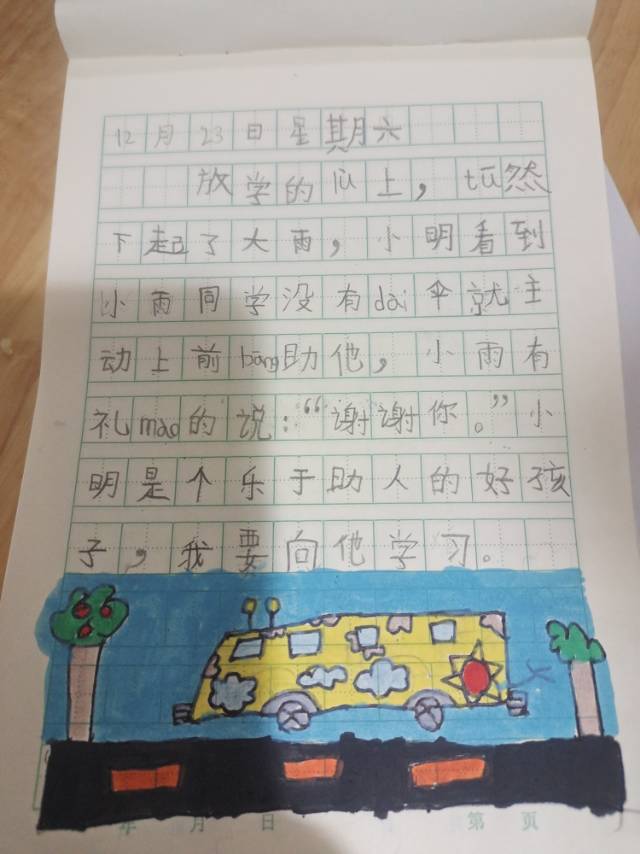 12月23日星期六
放学的lù上，tū然
下起了大雨，小明看到
小雨同学没有dài伞就主
动上前bāng助他，小雨有
礼mào的说：“谢谢你。”小
明是个乐于助人的好孩
子，我要向他学习。
年 月 日 第 页